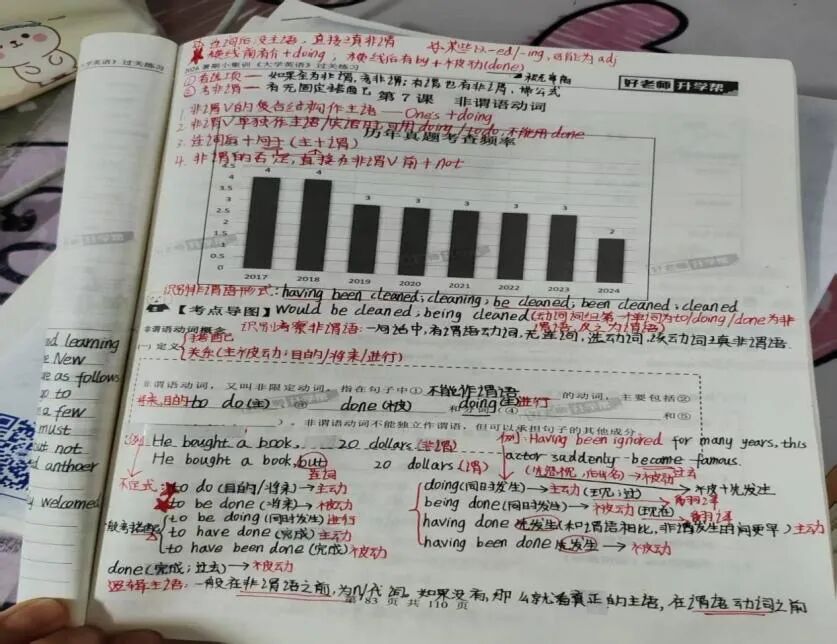 连词后没主语，直接填非谓
某些V.-ed/-ing，可能为adj
横线前有介+doing，横线后有by+不及物(done)
2024暑期小集训《大学英语》过关练习
①看选项——如果全为非谓，考非谓；有谓也有非谓，带公式
好老师 升学帮
②考非谓——有无固定搭配
第7课 非谓语动词
1. 非谓V的复合结构作主语——One's+doing
2. 非谓V单独作主语/宾语时，可用doing/to do，不能用done
历年真题考查频率
3. 连词后+句子（主+谓）
4. 非谓的否定，直接在非谓V前+not
4.5
4 4
4
3.5
3 3 3 3 3
3
2.5
2
2
1.5
1
0.5
0
2017 2018 2019 2020 2021 2022 2023 2024
识别非谓语形式：having been cleaned; cleaning; be cleaned; been cleaned; cleaned
【考点导图】would be cleaned; being cleaned(动词词组第一单词为to/doing/done为非谓语，反之为谓语)
非谓语动词概念
识别考察非谓语：一句话中，有谓语动词，无连词，选动词，该动词填非谓语.
搭配
(一) 定义
关系(主被动；目的/将来/进行)
非谓语动词，又叫非限定动词，指在句子中①不能作谓语的动词，主要包括②
将来,目的 to do(主) done(被) doing(主)进行 和分词（④ 和⑤
）。非谓语动词不能独立作谓语，但可以承担句子的其他成分。
例：He bought a book, 20 dollars.(非谓)
例：Having been ignored for many years, this
He bought a book, but 20 dollars (谓)
actor suddenly become famous.
连词
(先忽视,后成名) 不被动 过去
不定式：to do (目的/将来)→主动
doing(同时发生)→主动
to be done (将来)→被动
being done (同时发生)→被动(现在)
to be doing (同时发生) 进行
having done 先发生(和谓语相比，非谓发生的时间更早)主动
to have done (完成) 主动
having been done 先发生→被动
to have been done (完成) 被动
done(完成；过去)→被动
逻辑主语：一般在非谓语之前，为N/代词。如果没有，那么就看真正的主语，在谓语动词之前
第 83 页 共 110 页
大学英语》过关练习
learning
New
as follows
to
a few
must
but not
anthoer
welcomed